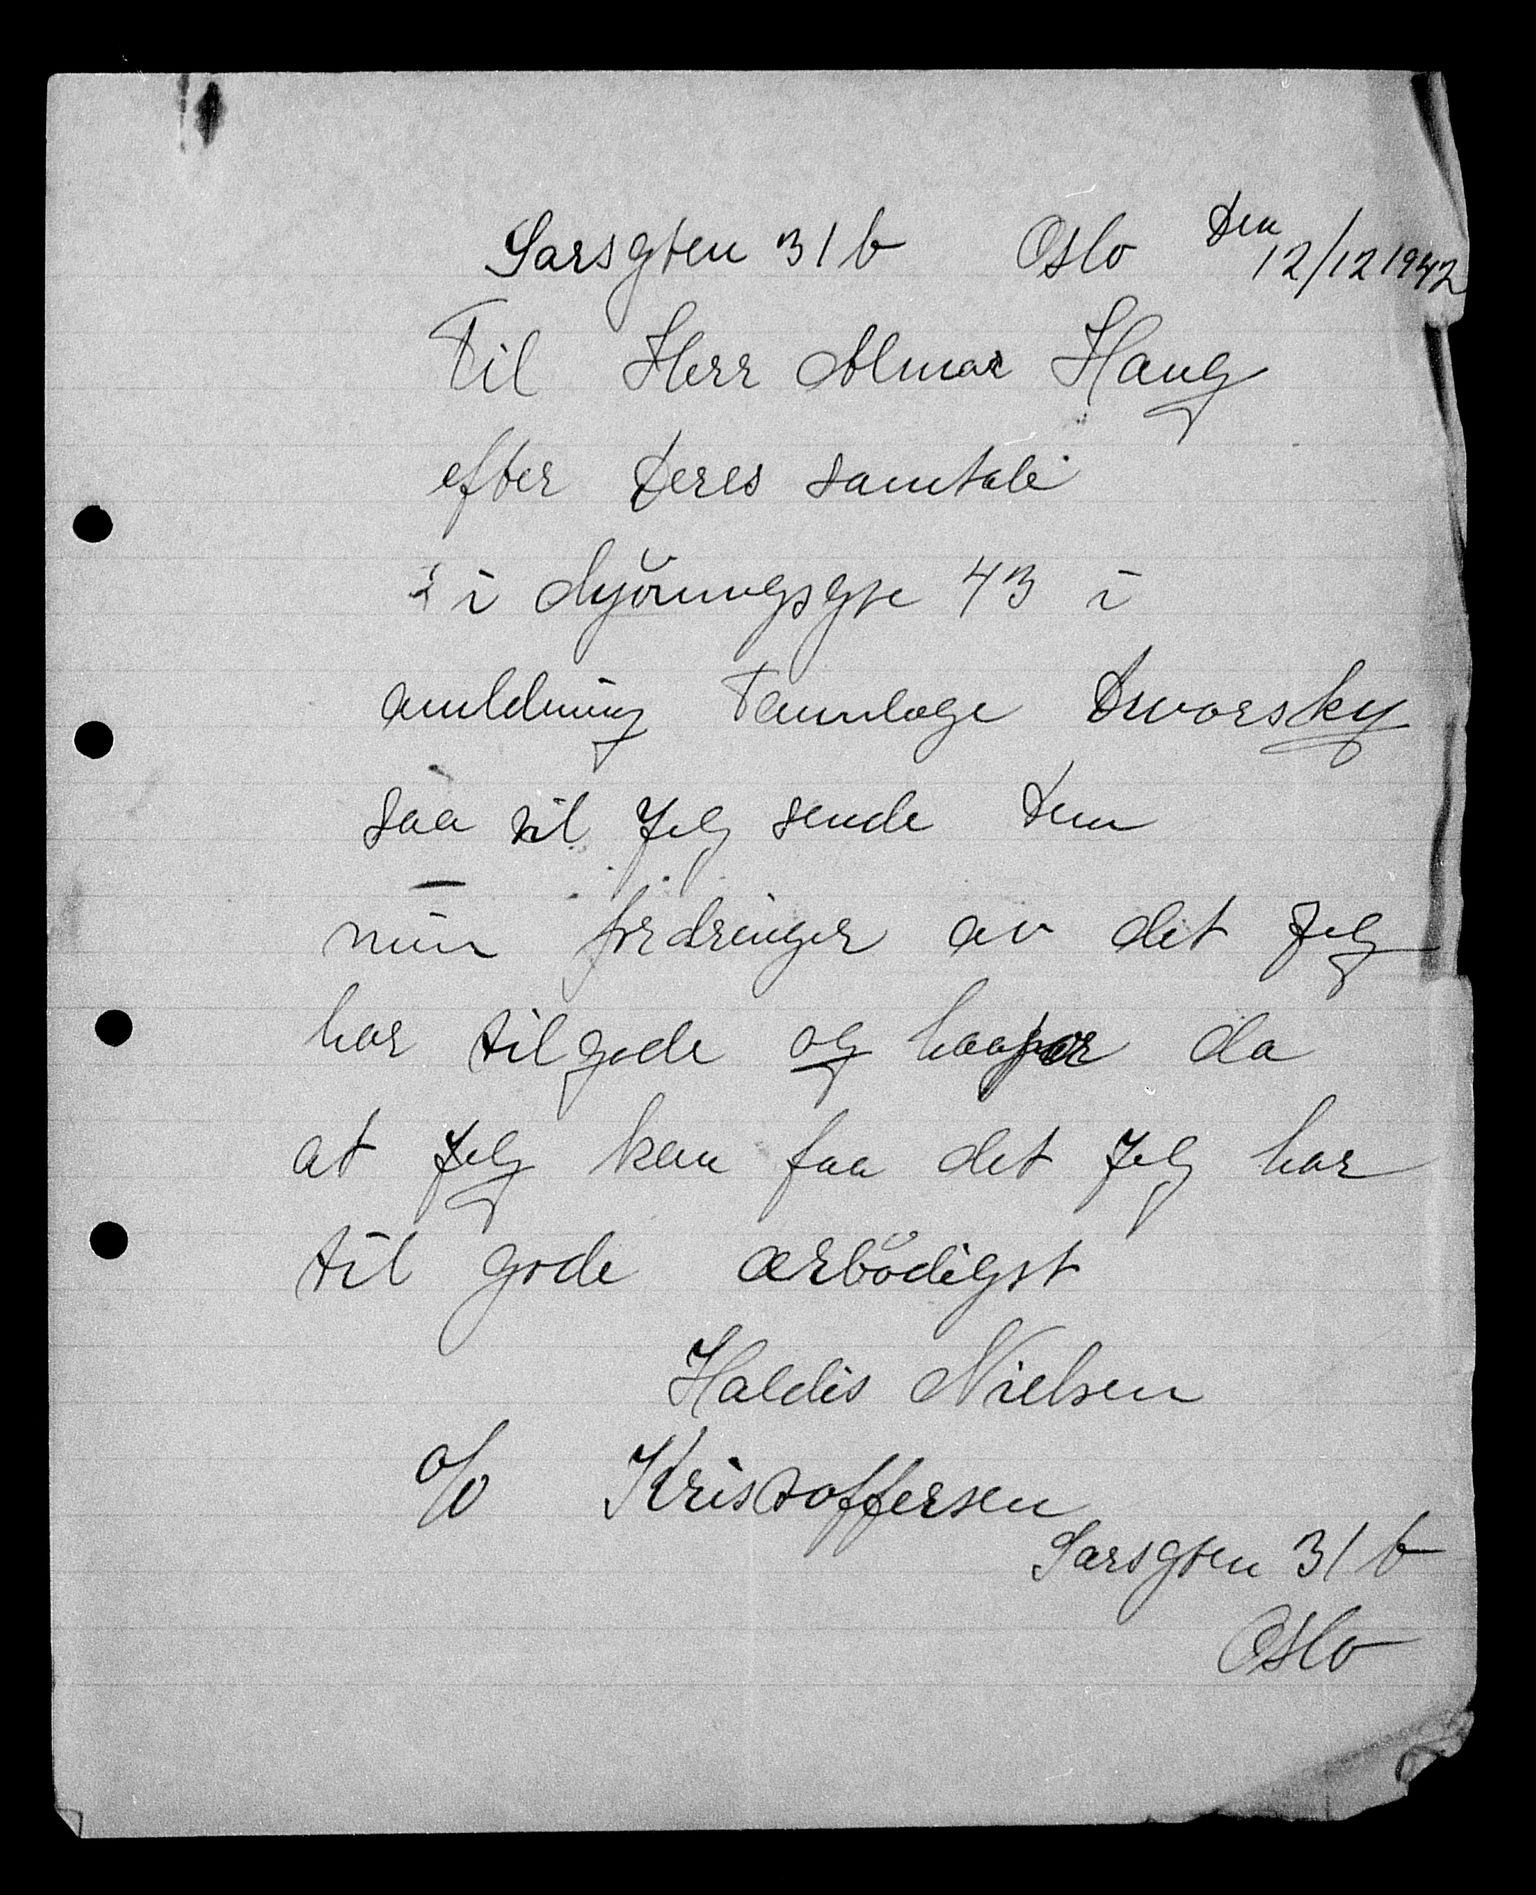 Sarsgten 31 b Oslo Den 12/12 1942
Til Herr Almar Haug
efter Deres samtale
i 43 i
anledning Tannlæge Dworsky
saa vil Jeg sende Dem
min fordringer av det Jeg
har tilgode og haaper da
at Jeg kan faa det Jeg har
til gode ærbödigst
Haldis Nielsen
o/o Kristoffersen
Sarsgten 31 b
Oslo